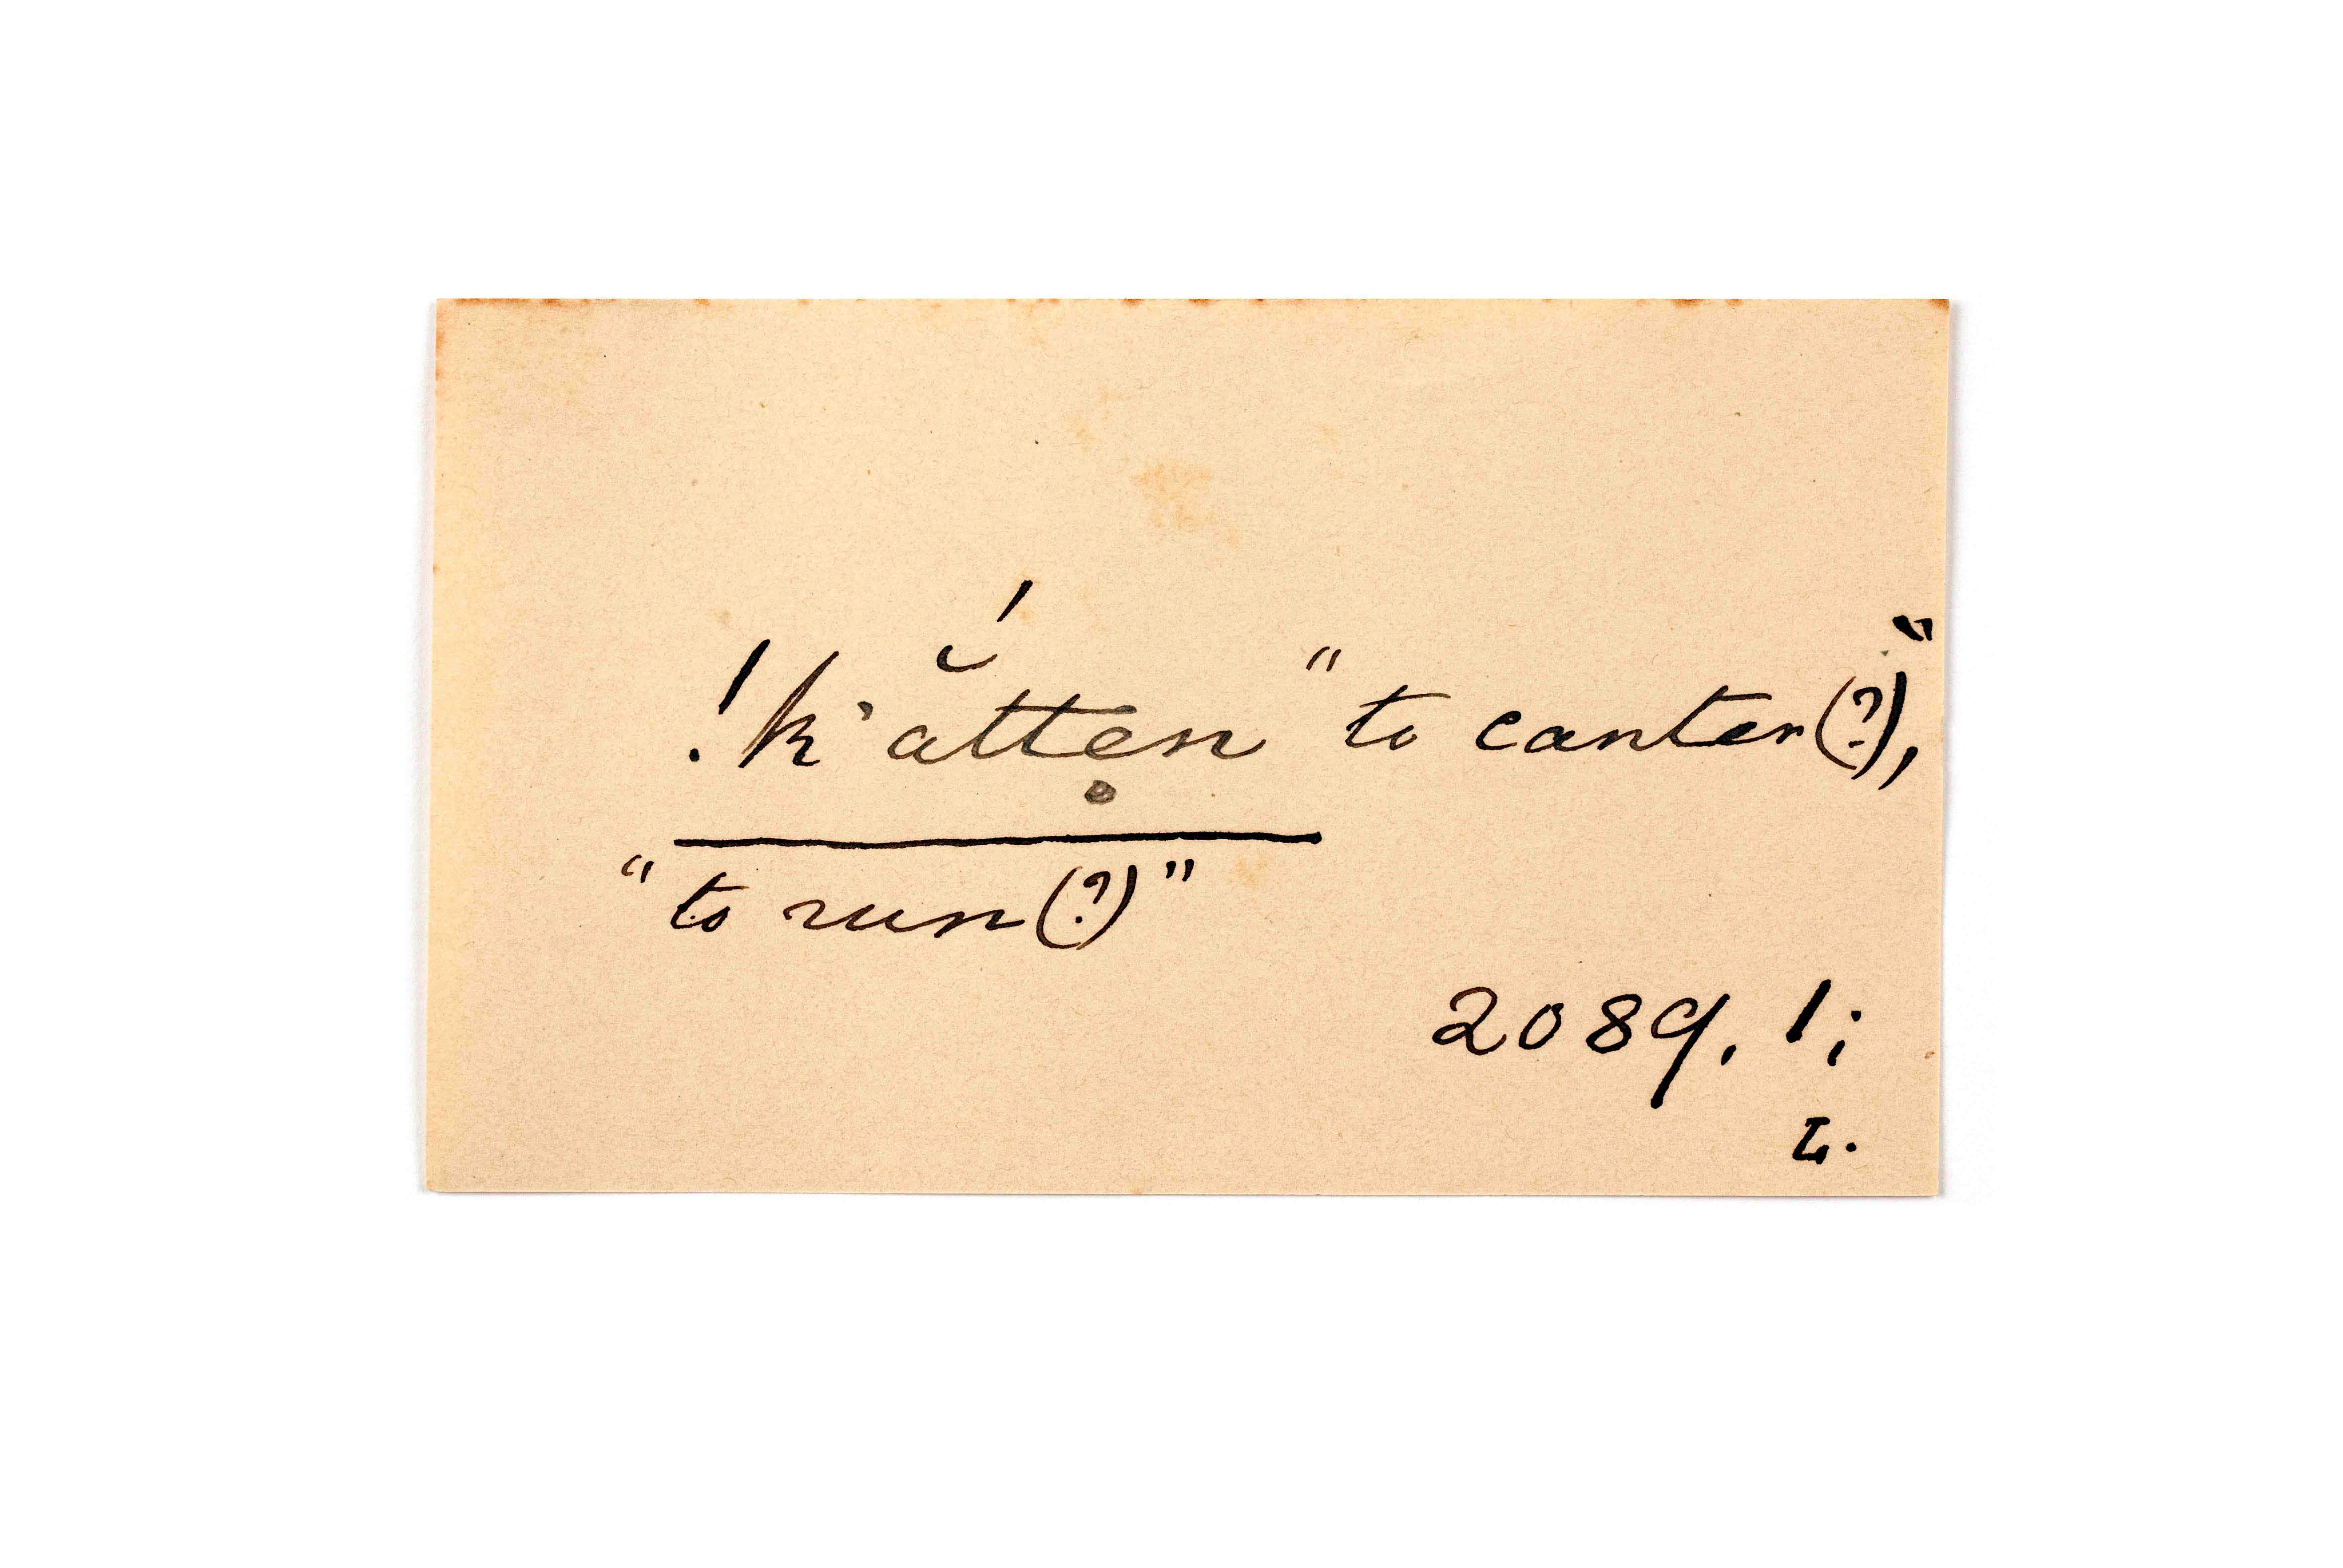 !kʻắttẹn "to canter(?),"
"to run(?)"
2089, !;
L.